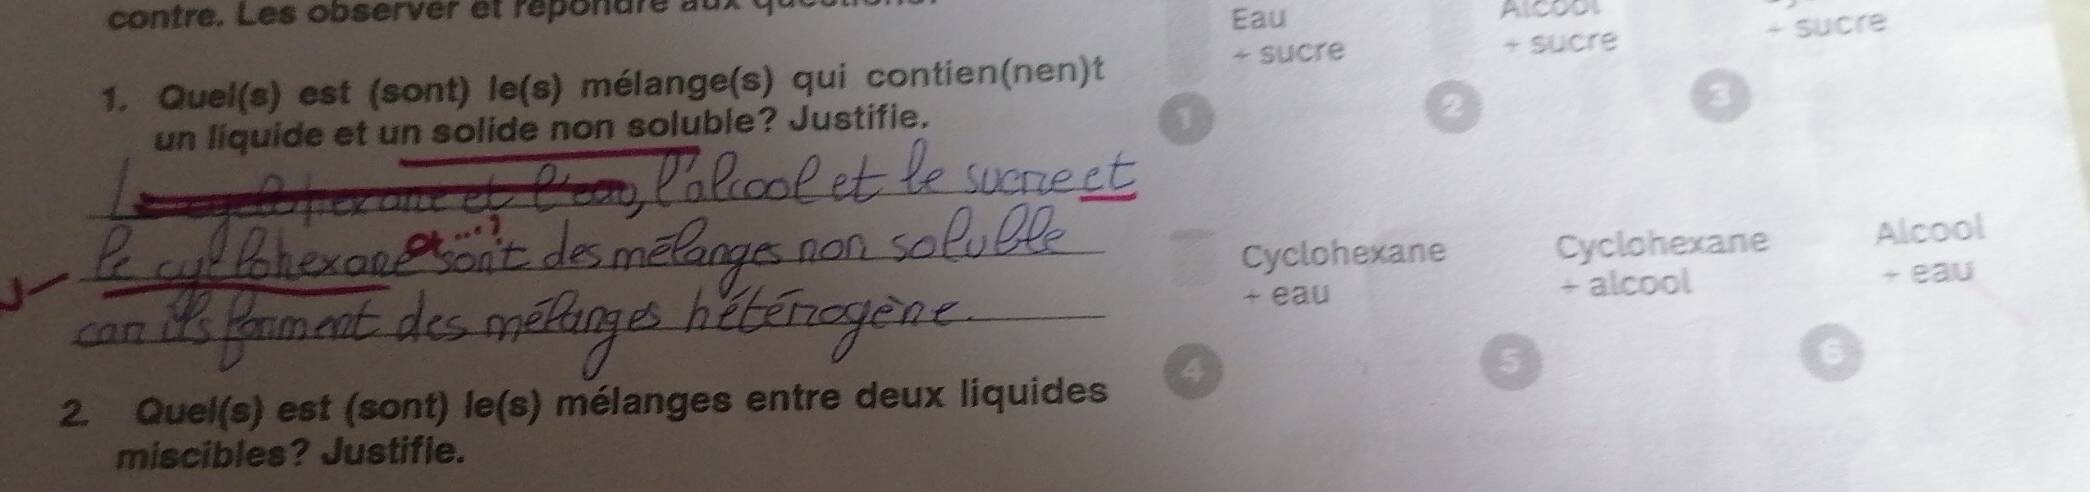 contre. Les observer et répondre aux
1. Quel(s) est (sont) le(s) mélange(s) qui contien(nen)t
un liquide et un solide non soluble? Justifie.
l'alcool et le sucre et
le cyclohexane et...? sont des mélanges non soluble
car ils forment des mélanges hétérogène.
2. Quel(s) est (sont) le(s) mélanges entre deux liquides
miscibles? Justifie.
Eau
+ sucre
1
Alcool
+ sucre
2
+ sucre
3
Cyclohexane
+ eau
4
Cyclohexane
+ alcool
5
Alcool
+ eau
6